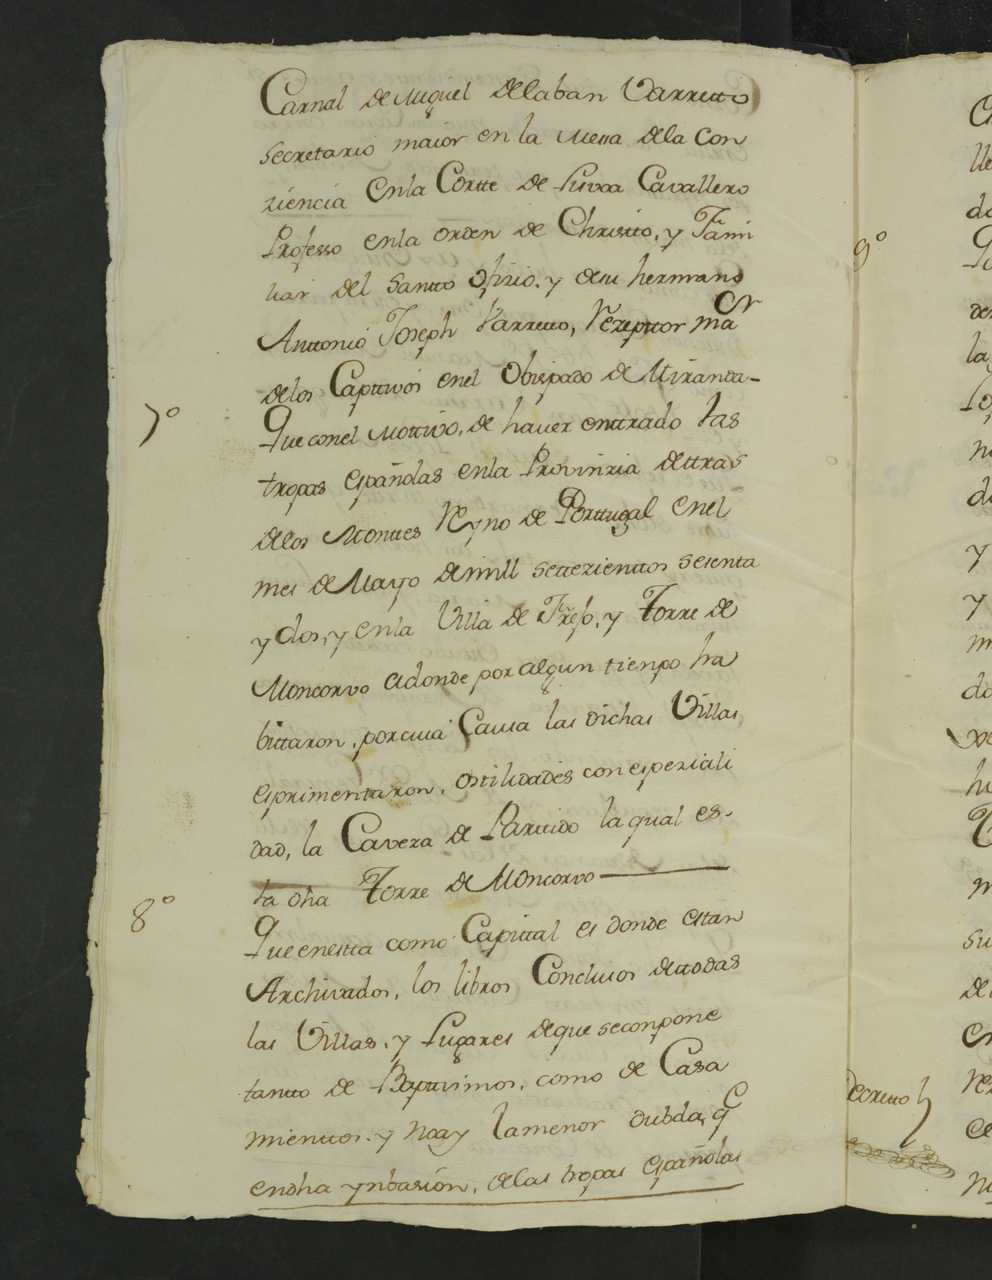 Carnal de Miguel Delaban Varretto
Secretario maior en la Messa dela Con
ziencia en la Cortte de Lixvoa Cavallero
Professo en la orden de Christto, y Fami
liar del Santto ofizio, y desu hermano
Anttonio Joseph Varretto, Rezepttor maor
delos Capttivos en el Obispado de Miranda-
7º Que con el Mottivo, de haver enttrado las
tropas españolas en la Provinzia dettras
delos Monttes Reyno de Porttugal en el
mes de Mayo de mill settezienttos sesenta
y dos, y en la Villa de Freso, y Torre de
Moncorvo adonde por algun tienpo ha
bittaron, por cuia Causa las dichas Villas
esprimentaron, ostilidades con espeziali
dad, la Caveza de Parttido la qual es-
ta dha Torre de Moncorvo
8º Que en estta como Capittal es donde estan
Archivados, los libros Conclusos de ttodas
las Villas, y Lugares de que se conpone
tantto de Bapttismos, como de Casa
mienttos. y no ay la menor dubda, qe
en dha ynbasión, de las tropas españolas
9º
Decretto